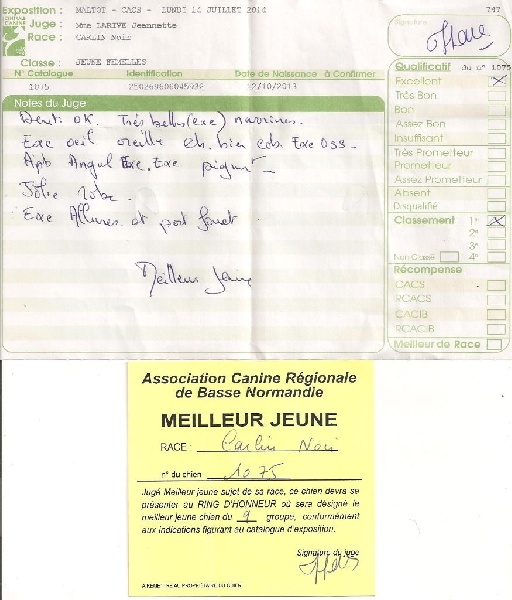 Exposition : MALTOT - CACS - LUNDI 14 JUILLET 2014
Juge : Mme LARIVE Jeannette
Race : CARLIN Noir
Classe : JEUNE FEMELLES
N° Catalogue Identification Date de Naissance à Confirmer
1075 250269606045932 12/10/2013
Notes du Juge
Dent. OK. Très belles (exc) narines.
Exc œil oreille ch. bien Exc Oss.
Apb Angul Exc. Exc pigmt
Jolie robe.
Exc Allures et port fouet
Meilleur Jeune
747
Signature
Qualificatif du n° 1075
Excellent X
Très Bon
Bon
Assez Bon
Insuffisant
Très Prometteur
Prometteur
Assez Prometteur
Absent
Disqualifié
Classement 1er X
2e
3e
Non Classé 4e
Récompense
CACS
RCACS
CACIB
RCACIB
Meilleur de Race
Association Canine Régionale
de Basse Normandie
MEILLEUR JEUNE
RACE : Carlin Noir
n° du chien 1075
Jugé Meilleur jeune sujet de sa race, ce chien devra se
présenter au RING D'HONNEUR où sera désigné le
meilleur jeune chien du 9 groupe, conformément
aux indications figurant au catalogue d'exposition.
Signature du juge
A REMETTRE AU PROPRIETAIRE DU CHIEN